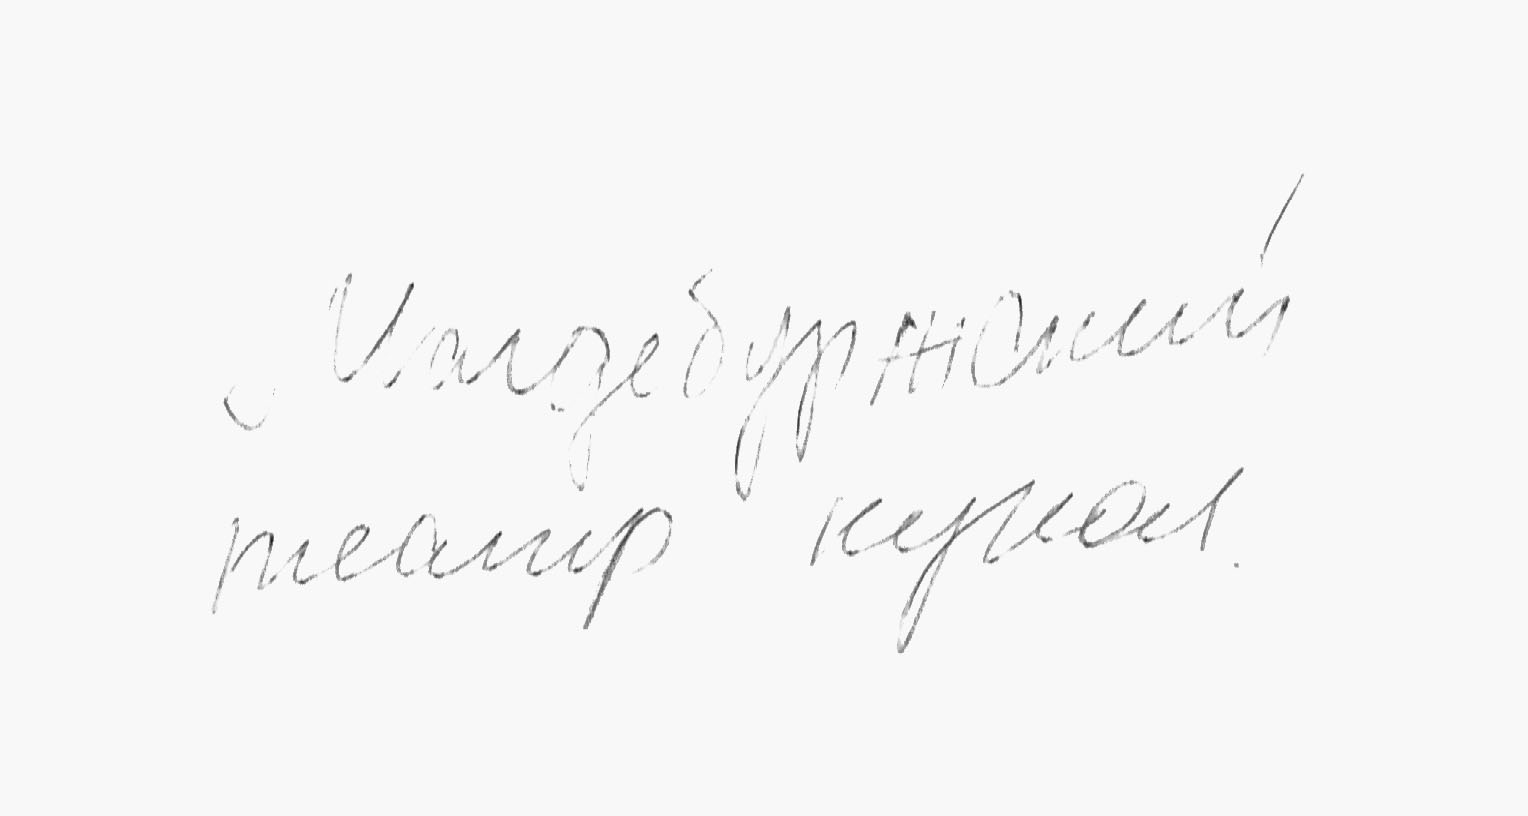 „Магдебуржский
театр кукол.